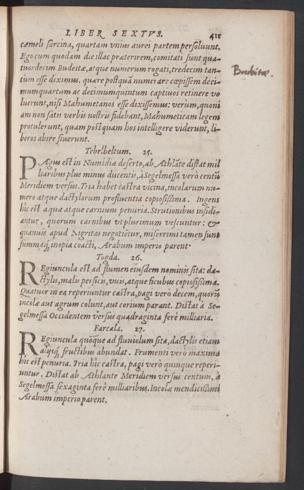 LIBER SEXTVS. 411
cameli sarcina, quartam vnius aurei partem persoluunt.
Ego cum quodam die illac præterirem, comitati sunt qua-
tuordecim Budeitæ, atque numerum rogati, tredecim tan-
tum esse diximus, quare postquã numerare cœpissem deci-
mumquartum ac decimumquintum captiuos retinere vo
luerunt, nisi Mahumetanos esse dixissemus: verum, quoni
am non satis verbis nostris fidebant, Mahumeticam legem
protulerunt, quam postquam hos intelligere viderunt, li-
beros abire siuerunt.
Budeitæ.
Tebelbeltum. 25.
PAgus est in Numidiæ deserto, ab Athlãte distat mil
liaribus plus minus ducentis, à Segelmessa verò centũ
Meridiem versus. Tria habet castra vicina, incolarum nu-
mero atque dactylarum profluentia copiosissima. Ingens
hic est aquæ atque carnium penuria. Strutionibus insidi-
antur, quorum carnibus vt plurimum vescuntur: &
quamuis apud Nigritas negotietur, miserrimi tamen sunt
summaq; inopia coacti, Arabum imperio parent.
Togda. 26.
REgiuncula est ad flumen eiusdem nominis sita: da-
ctylis, malis persicis, vuis, atque ficubus copiosissima.
Quatuor in ea reperiuntur castra, pagi verò decem, quorũ
incolæ aut agrum colunt, aut corium parant. Distat à Se-
gelmessa Occidentem versus quadraginta ferè milliaria.
Farcala. 27.
REgiuncula quoque ad fluuium sita, dactylis etiam
alijsq; fructibus abundat. Frumenti vero maxima
hic est penuria. Tria hic castra, pagi verò quinque reperi-
untur. Distat ab Athlante Meridiem versus centum, à
Segelmessa sexaginta ferè milliaribus. Incolæ mendicissimi
Arabum imperio parent.